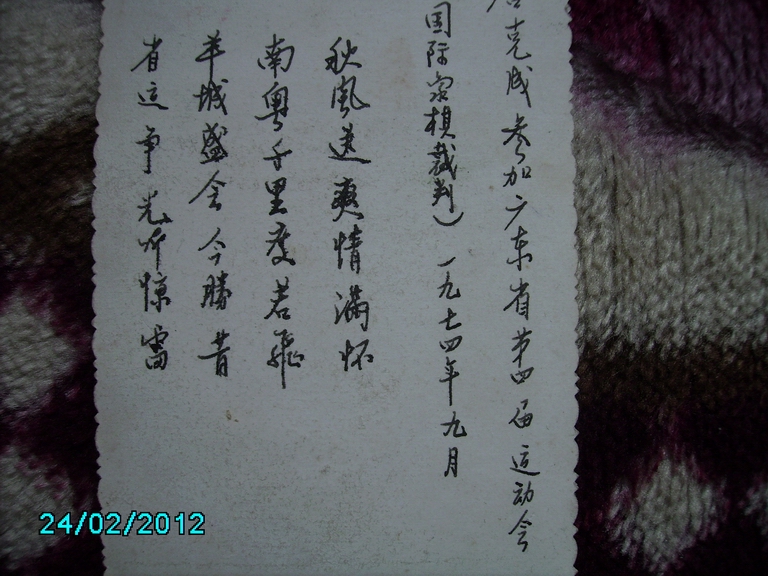 克成参加广东省第四届运动会
国际家棋裁判）一九七四年九月
秋风送爽情满怀
南粤千里度若飞
羊城盛会今勝昔
省运争光吓惊雷
24/02/2012